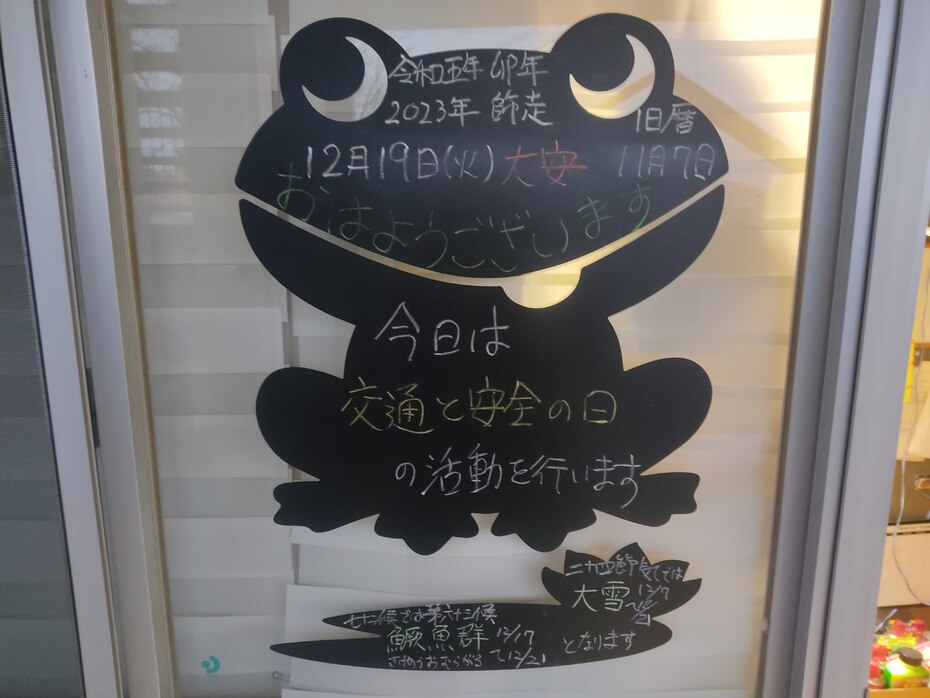 令和五年 卯年
2023年 師走
旧暦
12月19日(火) 大安 11月7日
おはようございます
今日は
交通と安全の日
の活動を行います
二十四節気では
大雪 12/7
となります
七十二候では第六十三候
鱖魚群 12/17
さけのうおむらがる 〜12/21